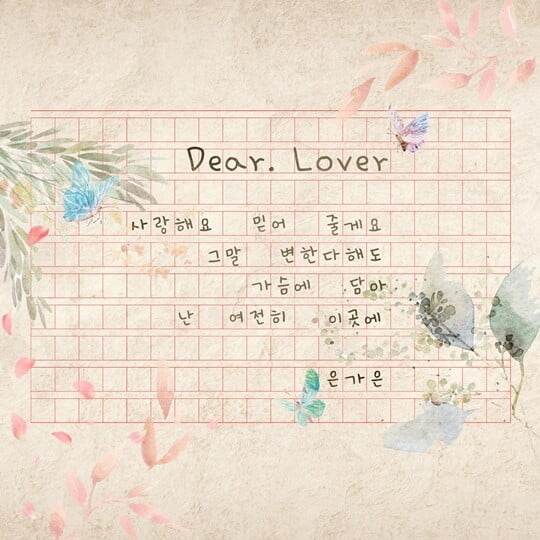 Dear. Lover
사랑해요 믿어 줄게요
그말 변한다해도
가슴에 담아
난 여전히 이곳에
은가은